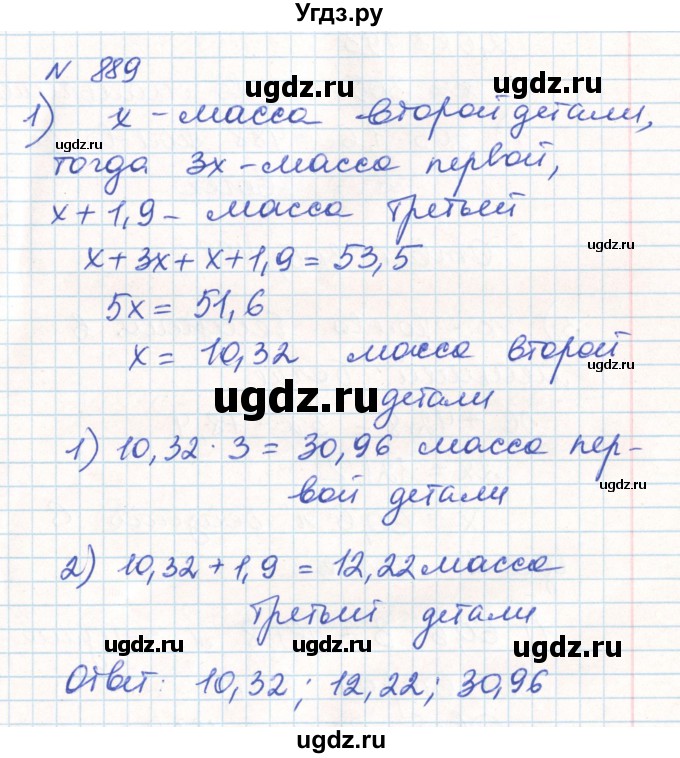 Угдз.ру
N 889
ugdz.ru
1) x - масса второй детали,
ugdz.ru
тогда 3x - масса первой,
ugdz.ru
x + 1,9 - масса третьей
ugdz.ru
x + 3x + x + 1,9 = 53,5
ugdz.ru
5x = 51,6
x = 10,32 масса второй
ugdz.ru
ugdz.ru
детали
1) 10,32 · 3 = 30,96 масса пер-
ugdz.ru
вой детали
2) 10,32 + 1,9 = 12,22 масса
третьей детали
ugdz.ru ugdz.ru
Ответ: 10,32; 12,22; 30,96
ugdz.ru